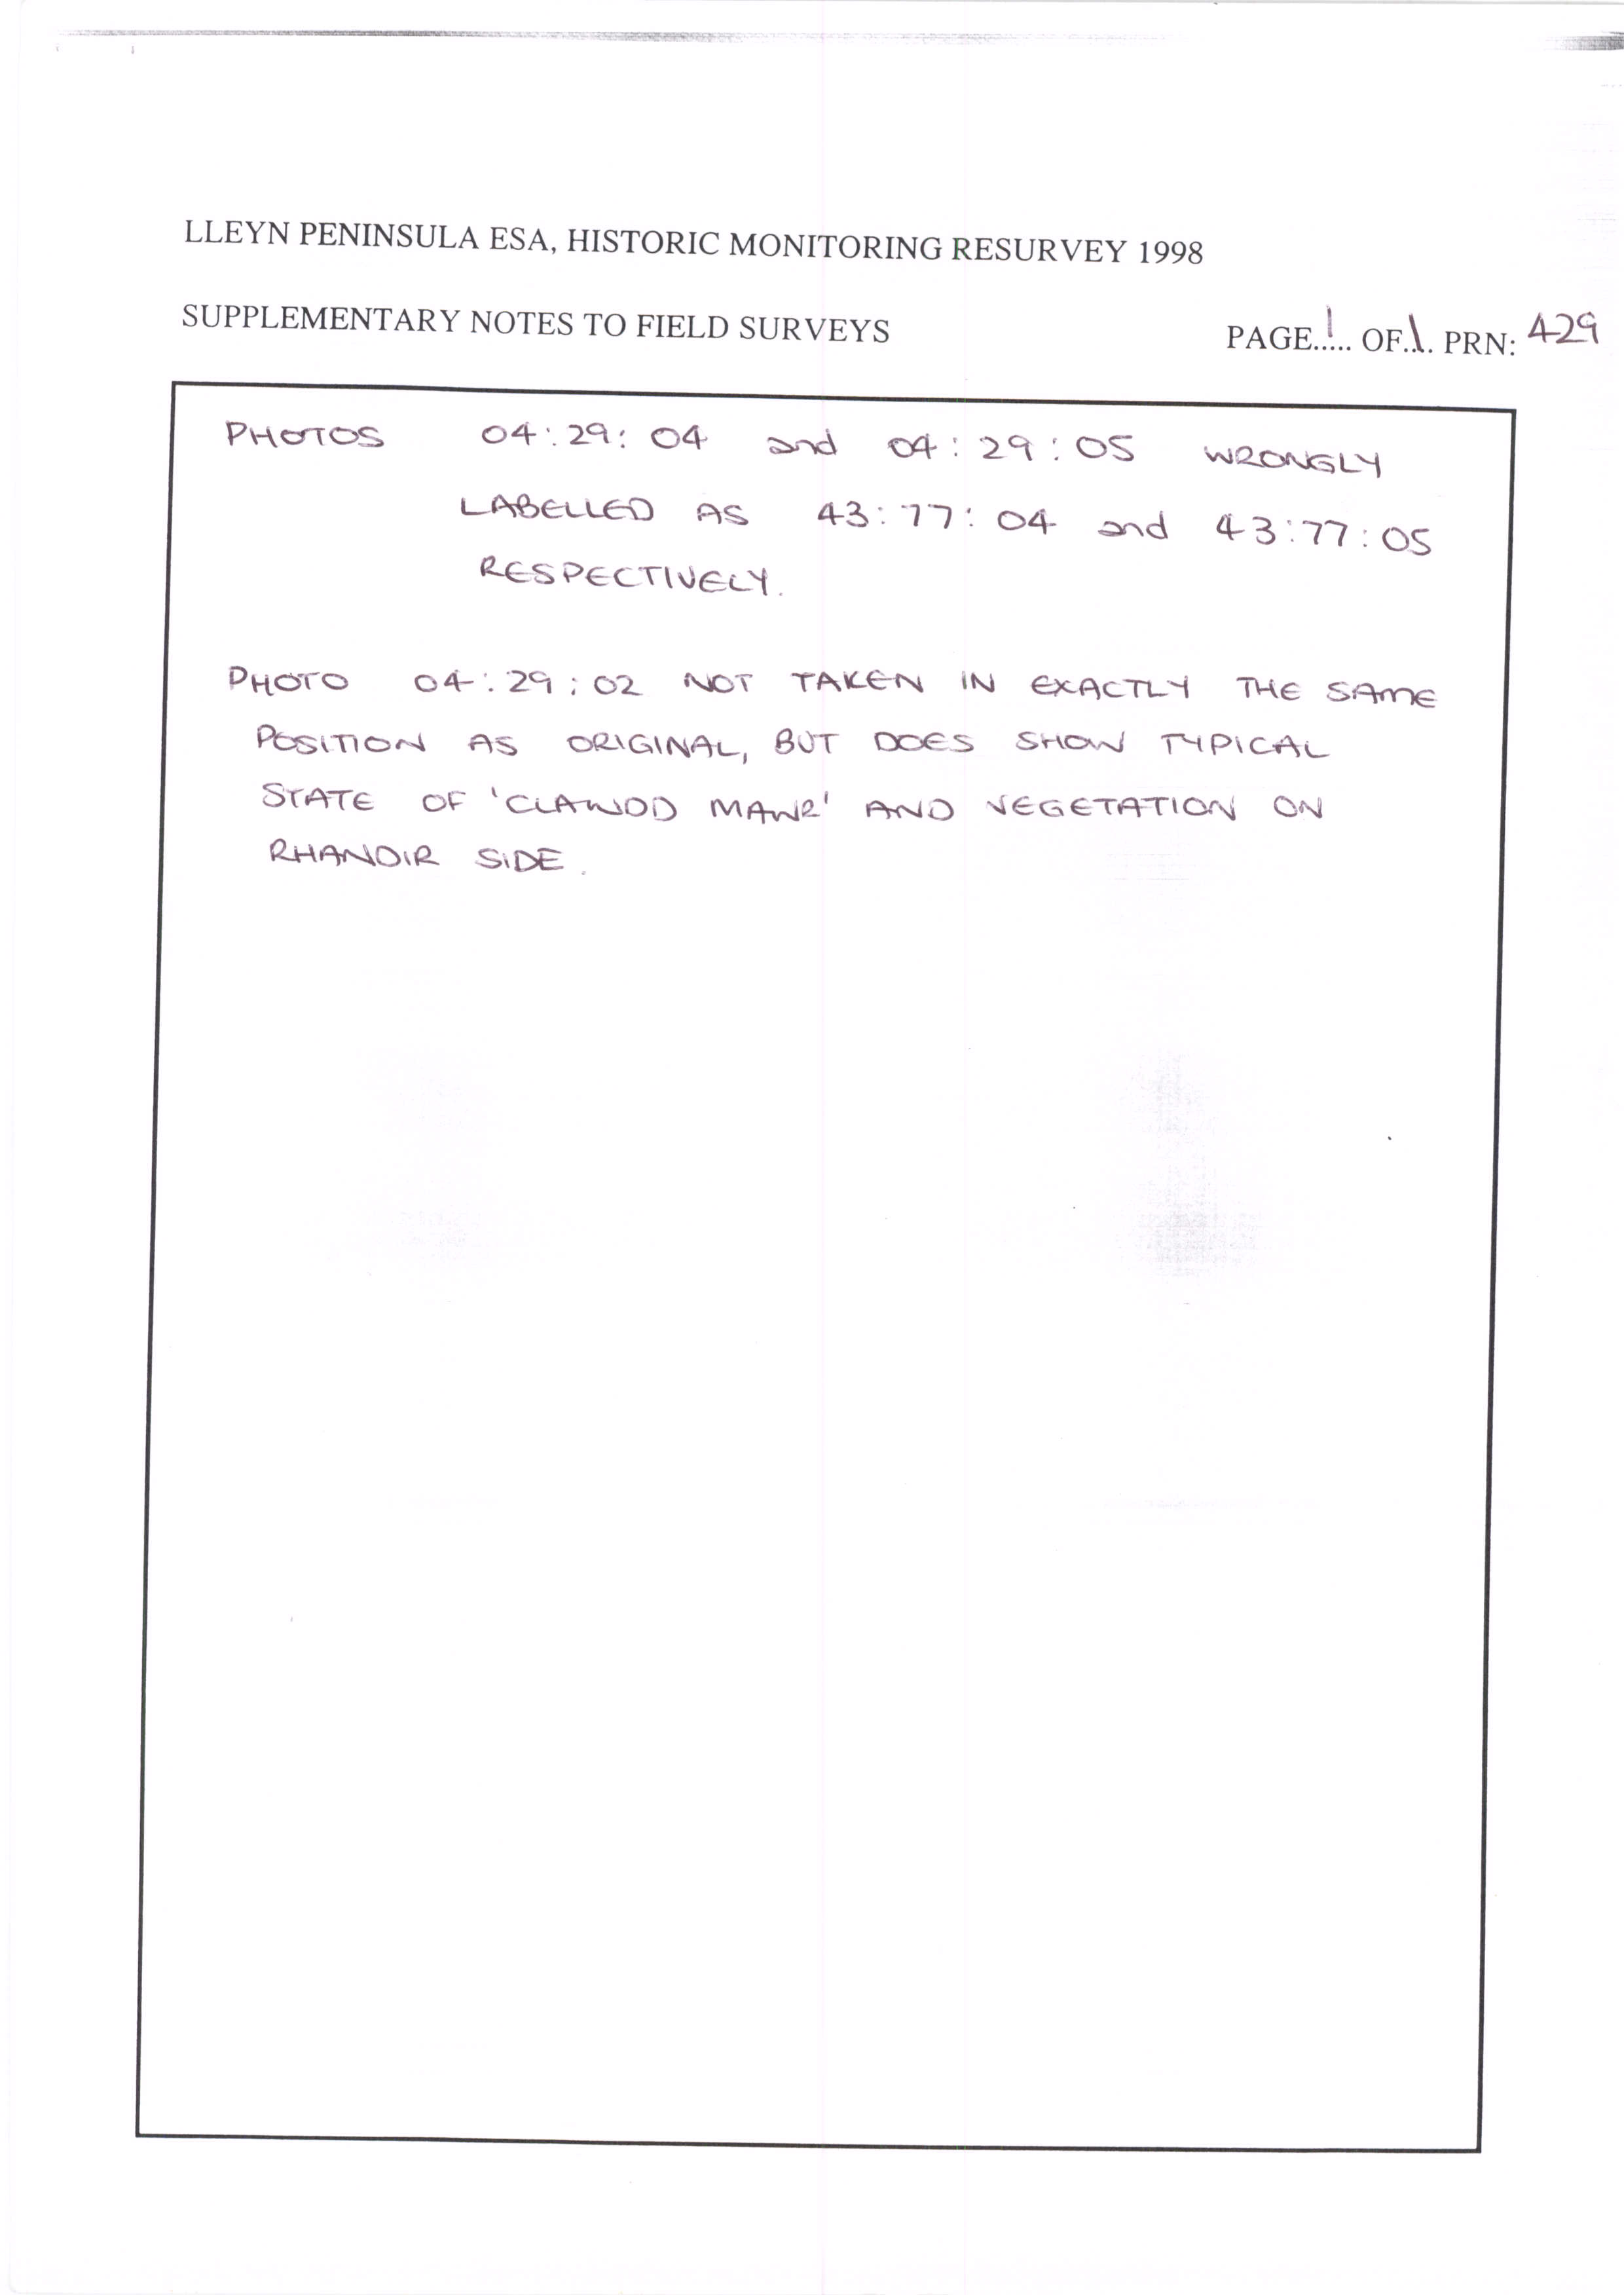 LLEYN PENINSULA ESA, HISTORIC MONITORING RESURVEY 1998
SUPPLEMENTARY NOTES TO FIELD SURVEYS PAGE..1.. OF.1.. PRN: 429
PHOTOS 04:29:04 and 04:29:05 WRONGLY
LABELLED AS 43:77:04 and 43:77:05
RESPECTIVELY.
PHOTO 04:29:02 NOT TAKEN IN EXACTLY THE SAME
POSITION AS ORIGINAL, BUT DOES SHOW TYPICAL
STATE OF 'CLAWDD MAWR' AND VEGETATION ON
RHANDIR SIDE.